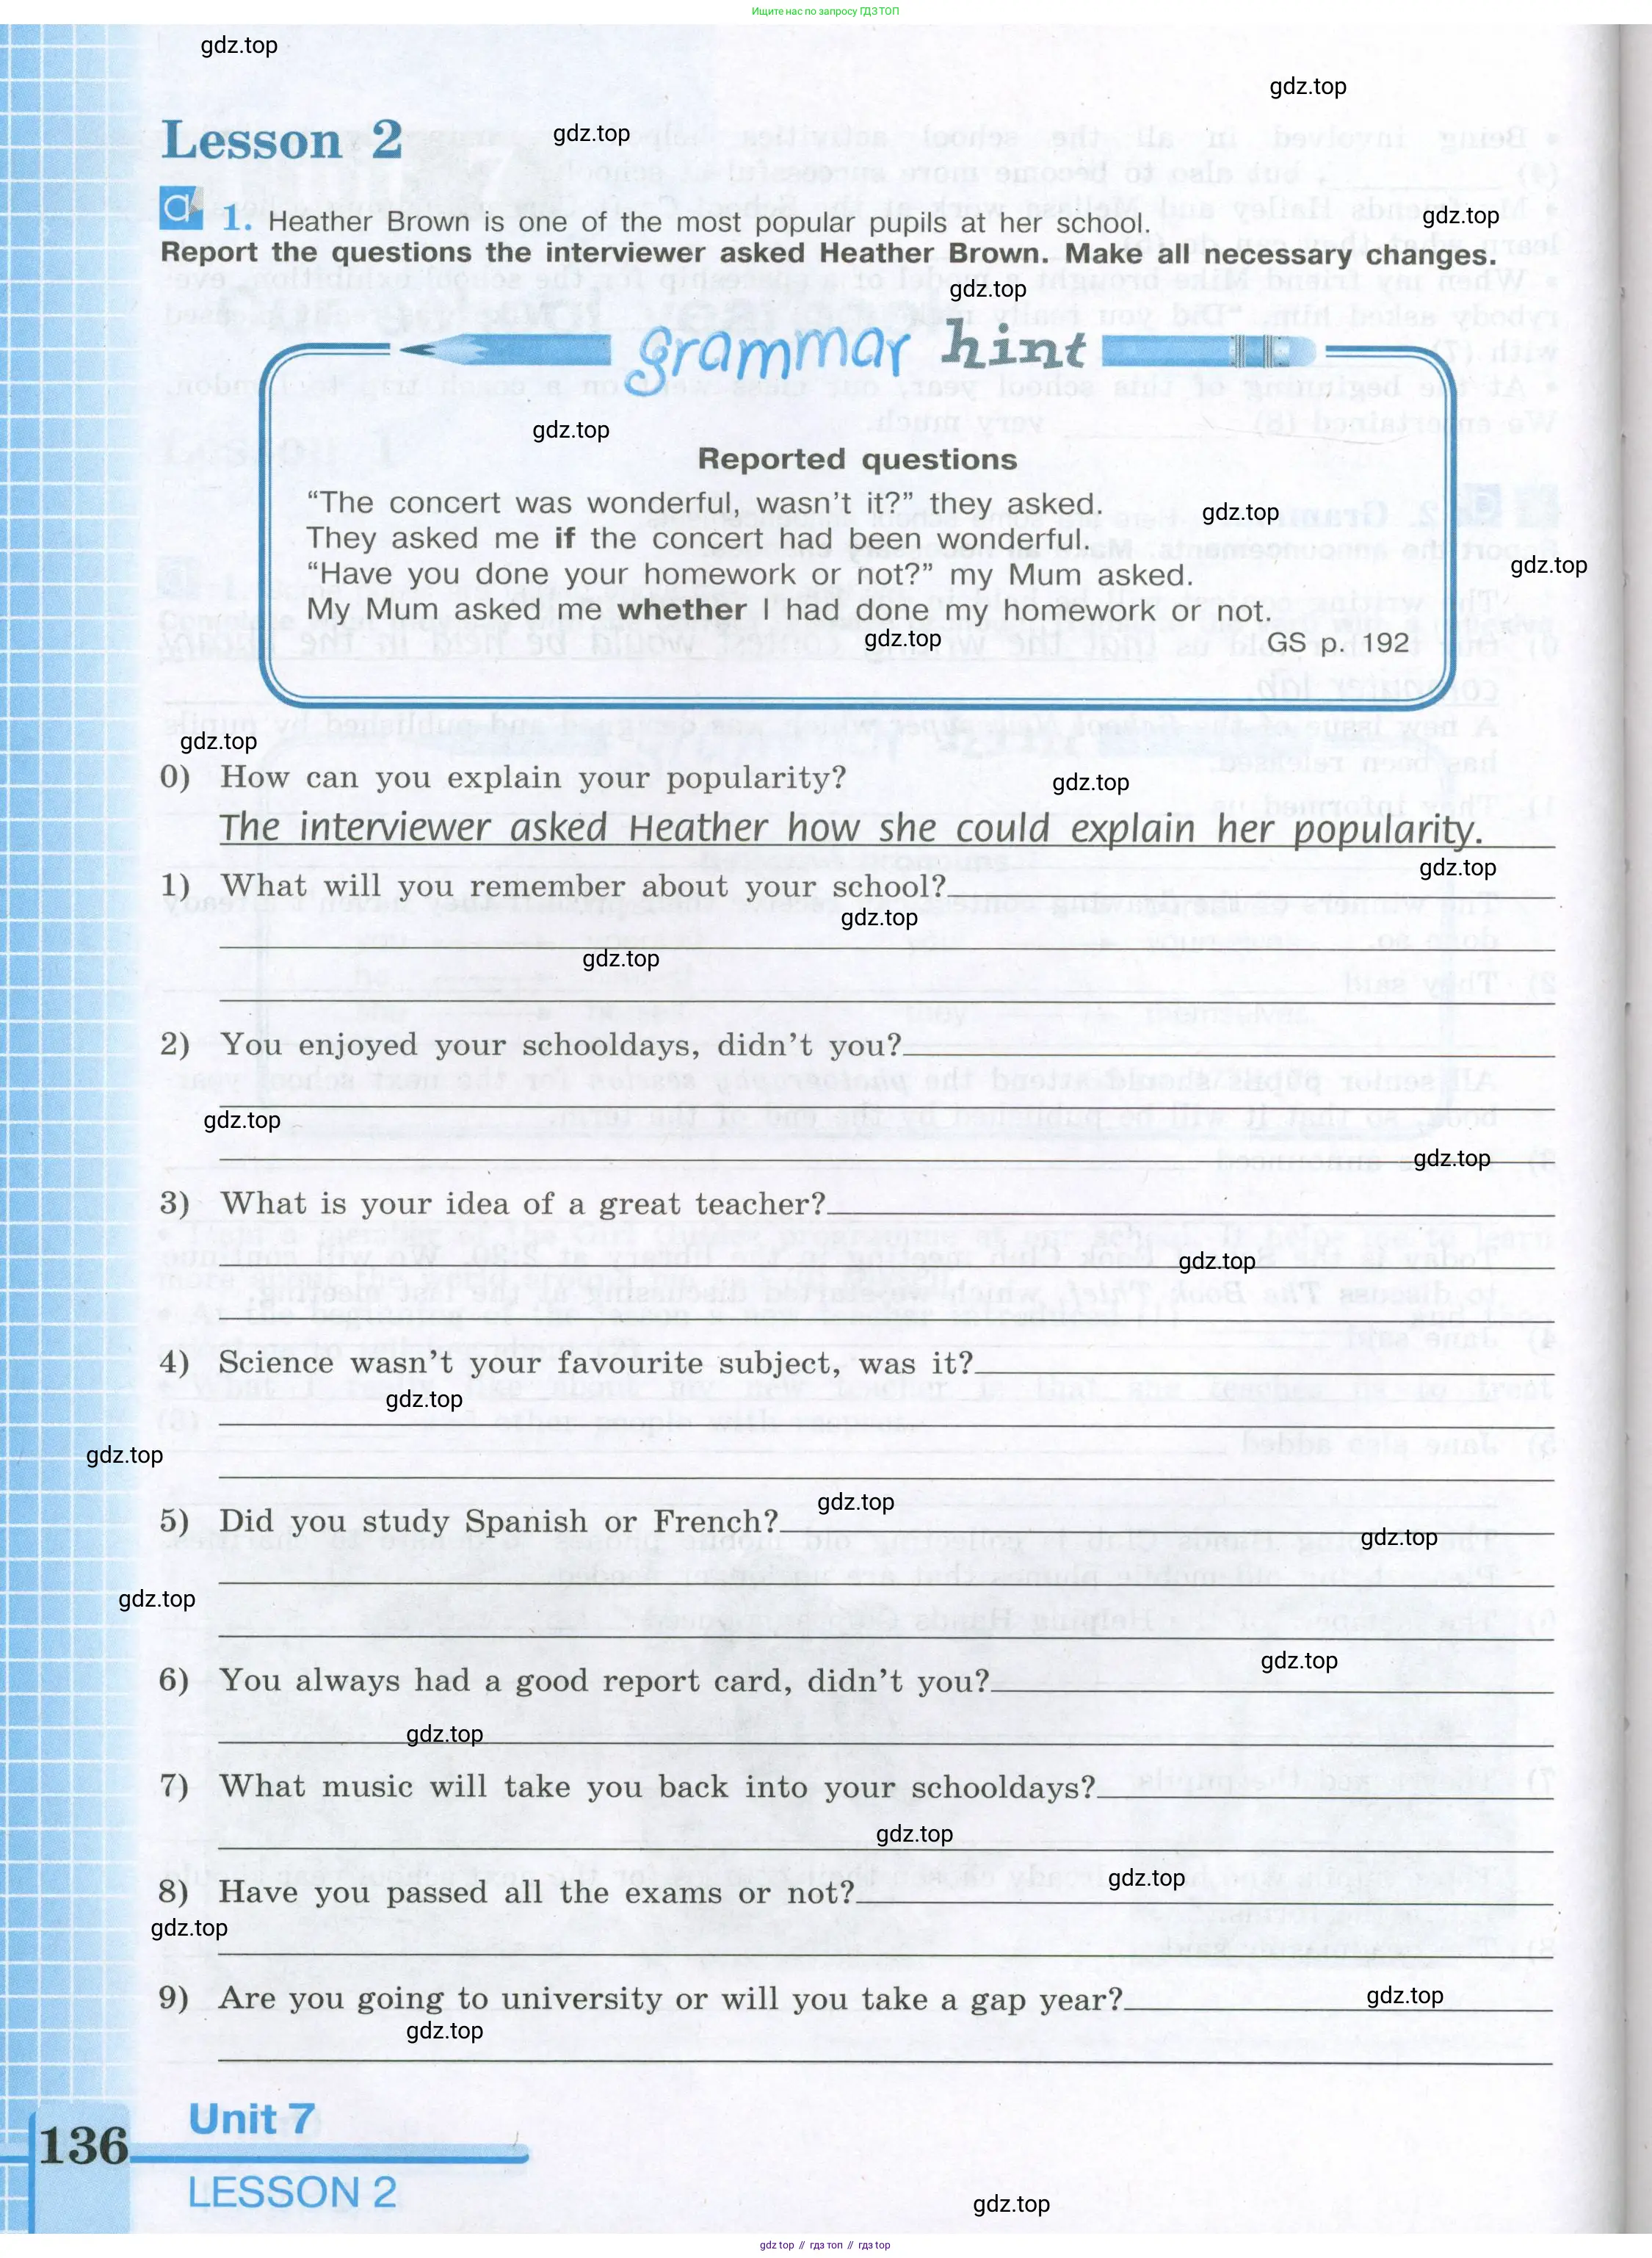 Ищите нас по запросу ГДЗ ТОП
gdz.top
gdz.top
Lesson 2
gdz.top
a 1. Heather Brown is one of the most popular pupils at her school.
gdz.top
Report the questions the interviewer asked Heather Brown. Make all necessary changes.
gdz.top
grammar hint
gdz.top
Reported questions
“The concert was wonderful, wasn’t it?” they asked.
gdz.top
They asked me if the concert had been wonderful.
gdz.top
“Have you done your homework or not?” my Mum asked.
My Mum asked me whether I had done my homework or not.
gdz.top
GS p. 192
gdz.top
0) How can you explain your popularity?
gdz.top
The interviewer asked Heather how she could explain her popularity.
gdz.top
1) What will you remember about your school?
gdz.top
gdz.top
2) You enjoyed your schooldays, didn’t you?
gdz.top
gdz.top
3) What is your idea of a great teacher?
gdz.top
4) Science wasn’t your favourite subject, was it?
gdz.top
gdz.top
gdz.top
5) Did you study Spanish or French?
gdz.top
gdz.top
gdz.top
6) You always had a good report card, didn’t you?
gdz.top
7) What music will take you back into your schooldays?
gdz.top
gdz.top
8) Have you passed all the exams or not?
gdz.top
9) Are you going to university or will you take a gap year?
gdz.top
gdz.top
Unit 7
136
LESSON 2
gdz.top
gdz top // гдз топ // гдз top